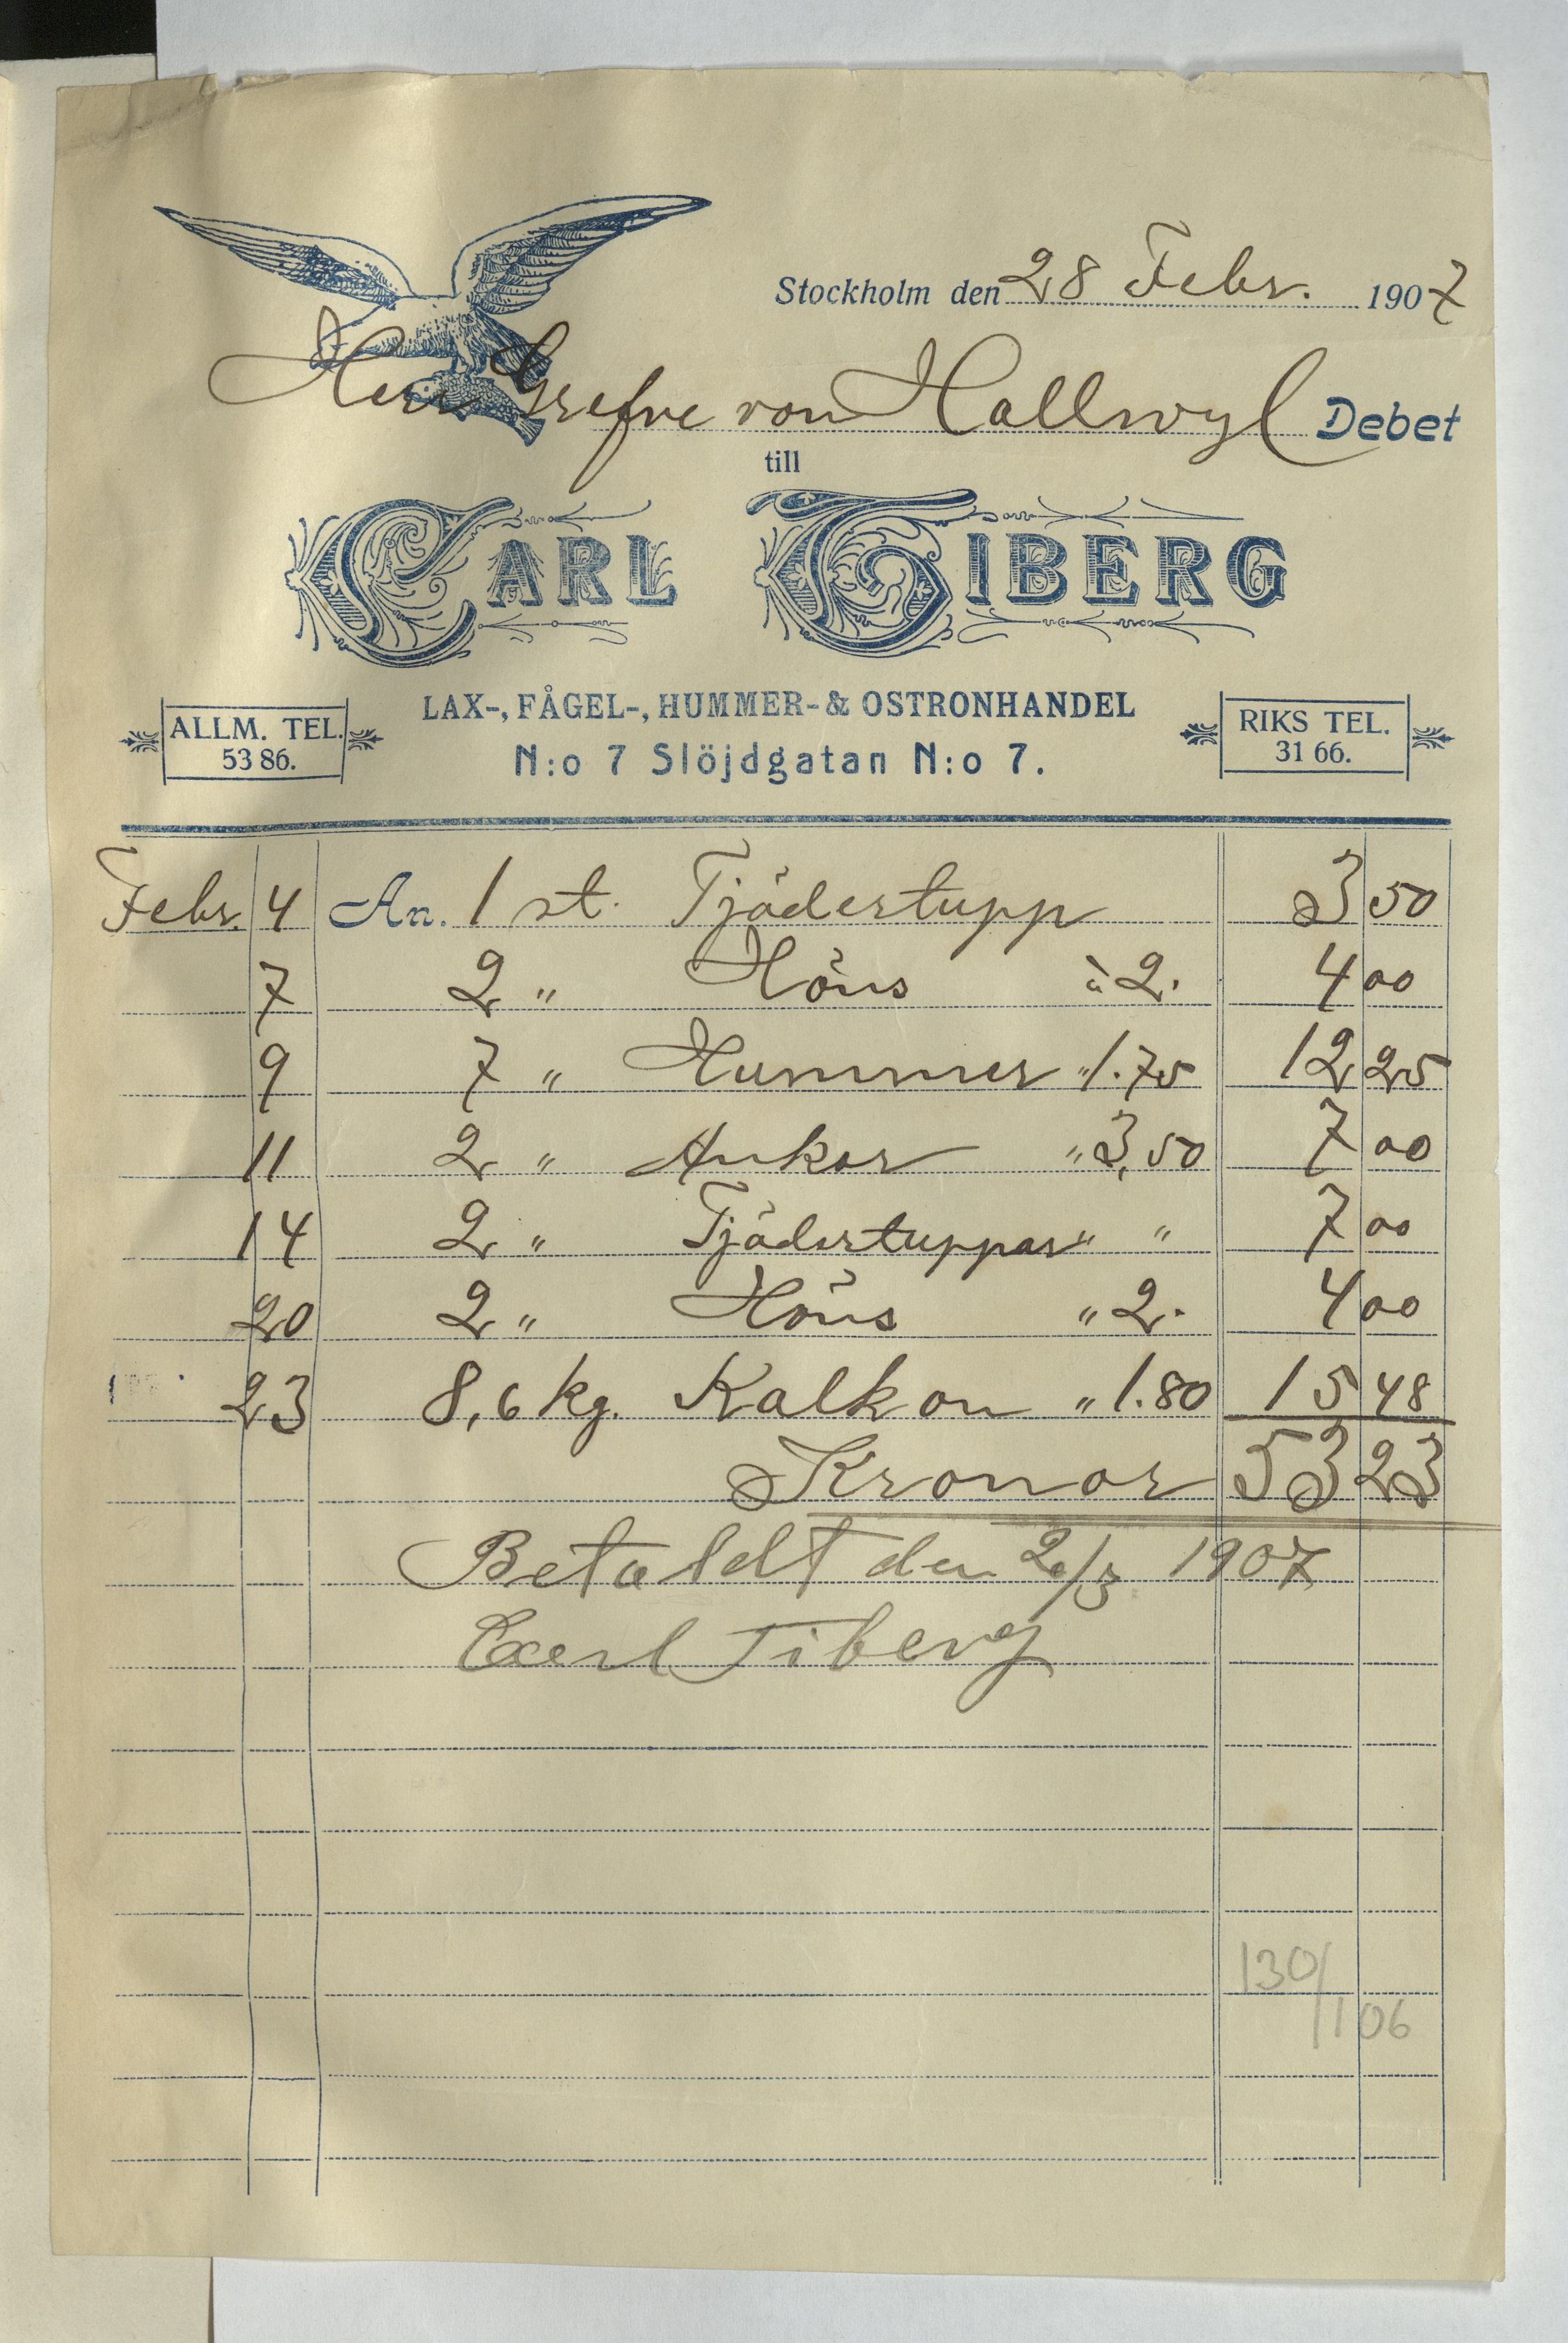 Stockholm den 28 Febr. 1907
Herr Grefve von Hallwyl Debet
till
CARL TIBERG
LAX-, FÅGEL-, HUMMER- & OSTRONHANDEL
N:o 7 Slöjdgatan N:o 7.
ALLM. TEL. 53 86.
RIKS TEL. 31 66.
Febr. 4 An. 1 st. Tjädertupp 3 50
7 2 " Höns à 2. 4 00
9 7 " Hummer " 1.75 12 25
11 2 " Ankor " 3,50 7 00
14 2 " Tjädertuppar " " 7 00
20 2 " Höns " 2. 4 00
23 8,6 kg. Kalkon " 1.80 15 48
Kronor 53 23
Betaldt den 2/3 1907
Carl Tiberg
130/
106